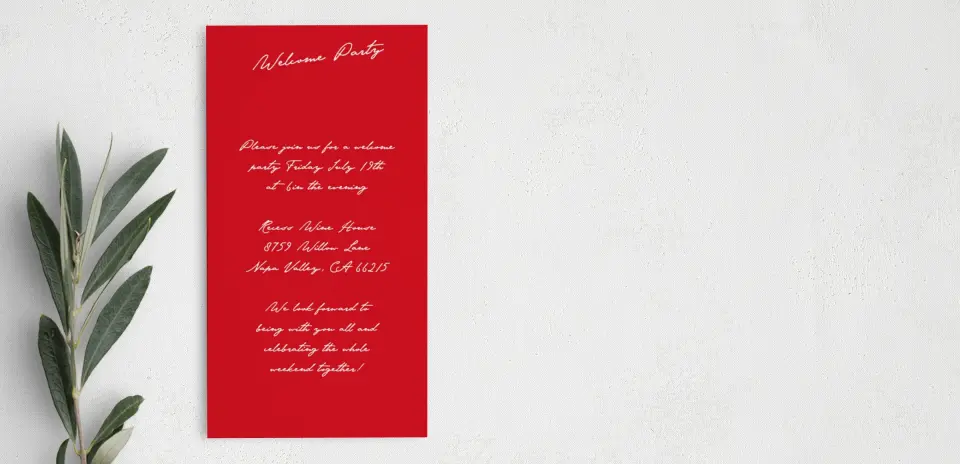 Welcome Party
Please join us for a welcome
party Friday July 19th
at 6in the evening
Recess Wine House
8759 Willow Lane
Napa Valley, CA 66215
We look forward to
being with you all and
celebrating the whole
weekend together!